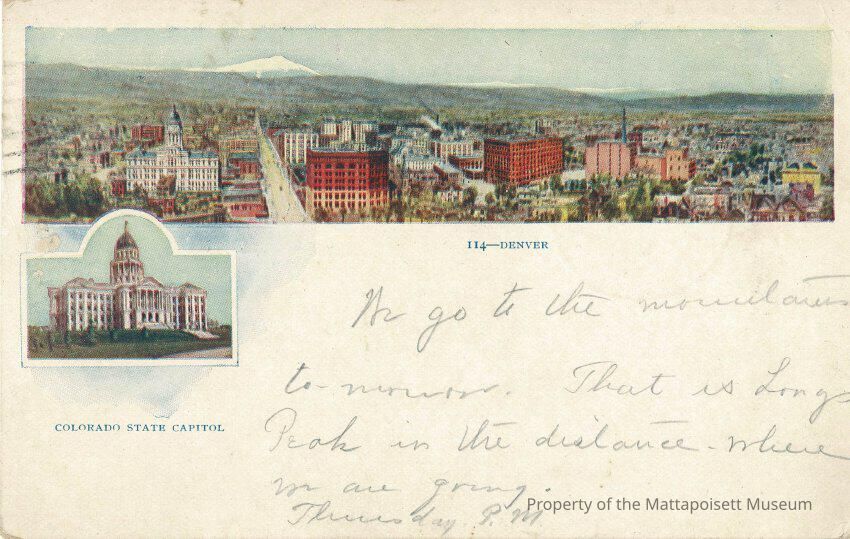 114—DENVER
We go to the mountains
to-morrow. That is Longs
Peak in the distance - where
COLORADO STATE CAPITOL
we are going.
Thursday P.M.
Property of the Mattapoisett Museum